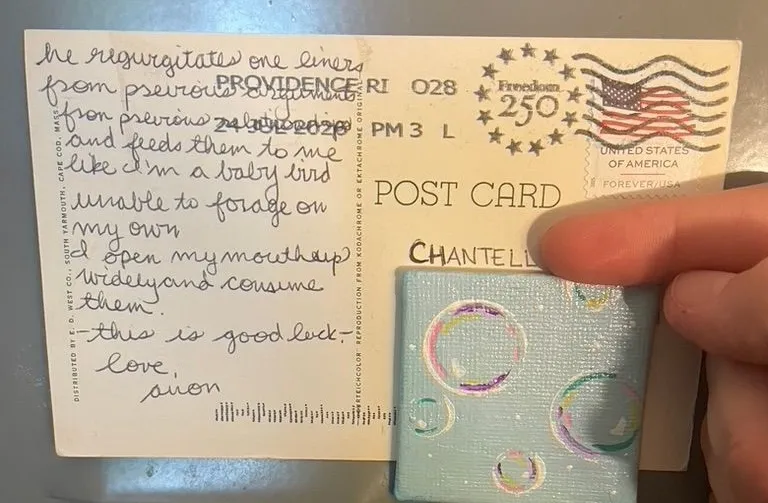 he regurgitates one liners
from pervious arguments
from pervious relationships
and feeds them to me
like i'm a baby bird
unable to forage on
my own
I open my mouth up
widely and consume
them.
-this is good luck-
love,
anon
DISTRIBUTED BY E. D. WEST CO., SOUTH YARMOUTH, CAPE COD, MASS.
REPRODUCTION FROM KODACHROME OR EKTACHROME ORIGINAL
PROVIDENCE RI 028
24 JUL 2026 PM 3 L
Freedom
250
UNITED STATES
OF AMERICA
FOREVER/USA
POST CARD
CHANTELL